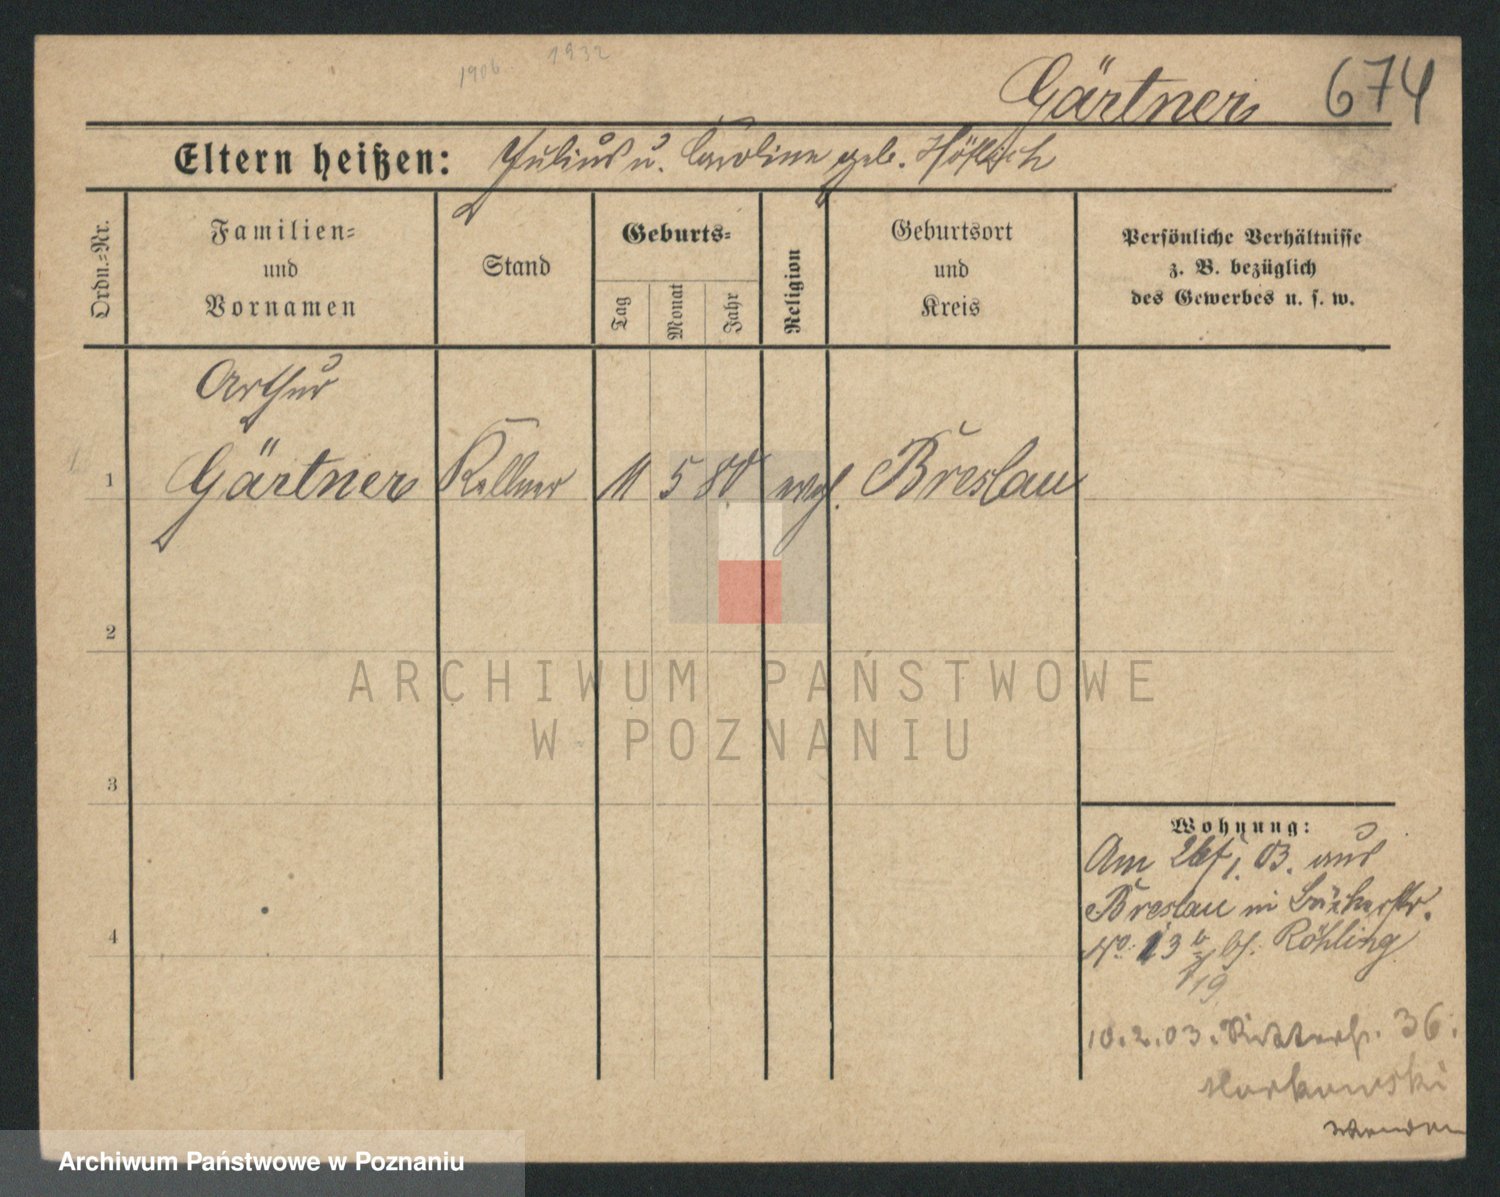 1906 1932
Gärtner 674
Eltern heißen: Julius u. Caroline geb.
Ordn.=Nr.
Familien=
und
Vornamen
Stand
Geburts=
Tag
Monat
Jahr
Religion
Geburtsort
und
Kreis
Persönliche Verhältnisse
z. B. bezüglich
des Gewerbes u. s. w.
Arthur
1 Gärtner Kellner 11 5 80 evgl. Breslau
2
ARCHIWUM PAŃSTWOWE
W POZNANIU
3
Wohnung:
Am 26/1. 03. aus
Breslau in Bäckerstr.
4
No. 13 b bei Röhling
19
10.2.03. Ritterstr. 36.
Markowski
wenden
Archiwum Państwowe w Poznaniu